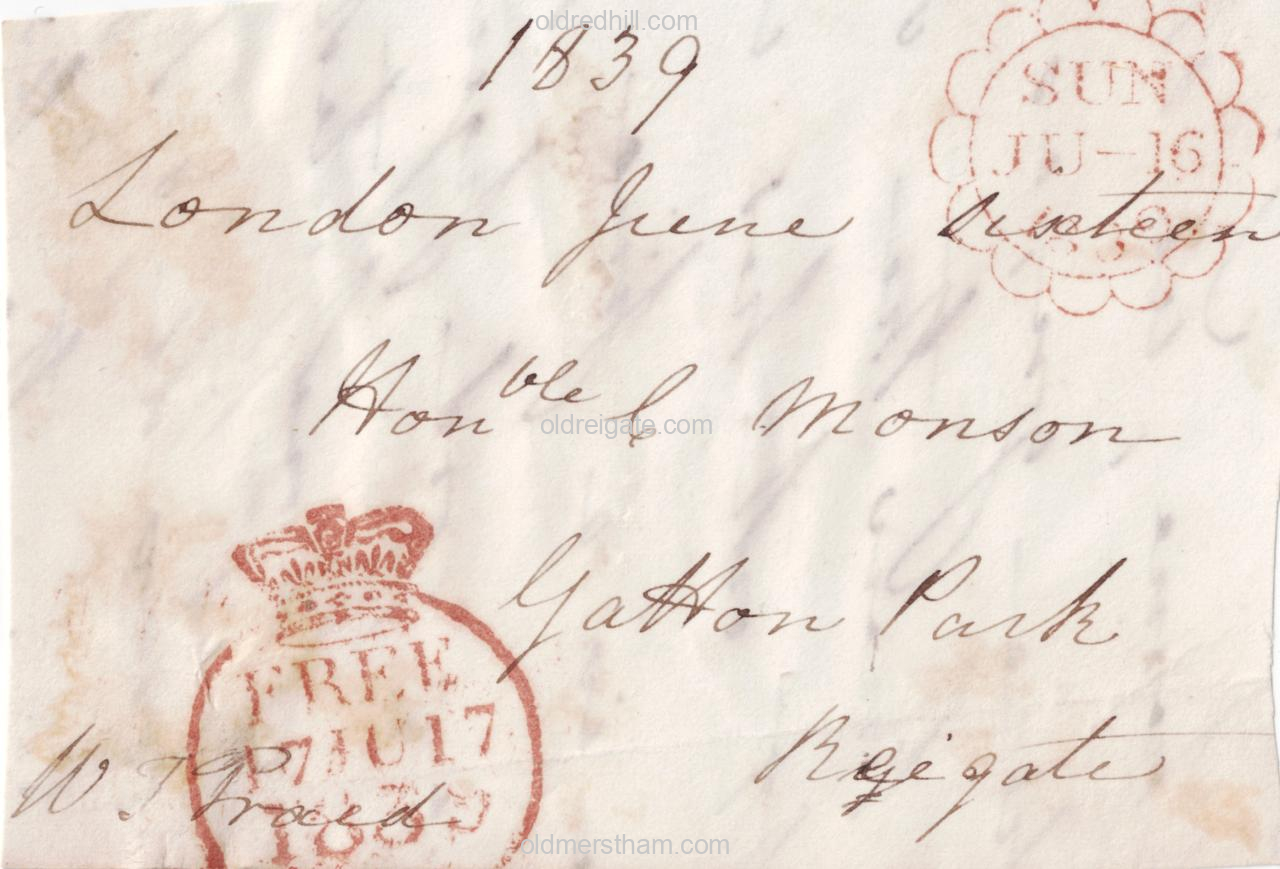 oldredhill.com
1839
SUN
JU-16
London June sixteen
Hon ble C Monson
oldreigate.com
Gatton Park
FREE
17JU17
1839
Reigate
W T Praed
oldmerstham.com